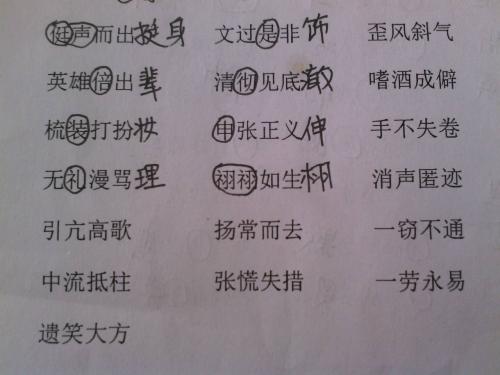 挺声而出 挺身 文过是非 饰 歪风斜气
英雄倍出 辈 清彻见底 澈 嗜酒成僻
梳装打扮 妆 申张正义 伸 手不失卷
无礼漫骂 理 祤祤如生 栩 消声匿迹
引亢高歌 扬常而去 一窃不通
中流抵柱 张慌失措 一劳永易
遗笑大方